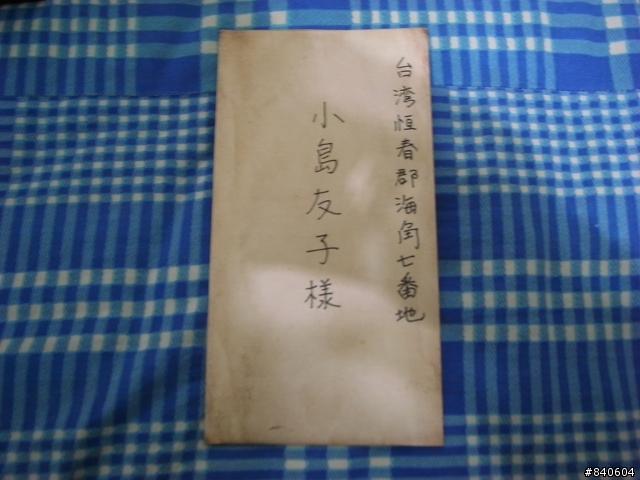 台湾恒春郡海角七番地
小島友子様
#840604